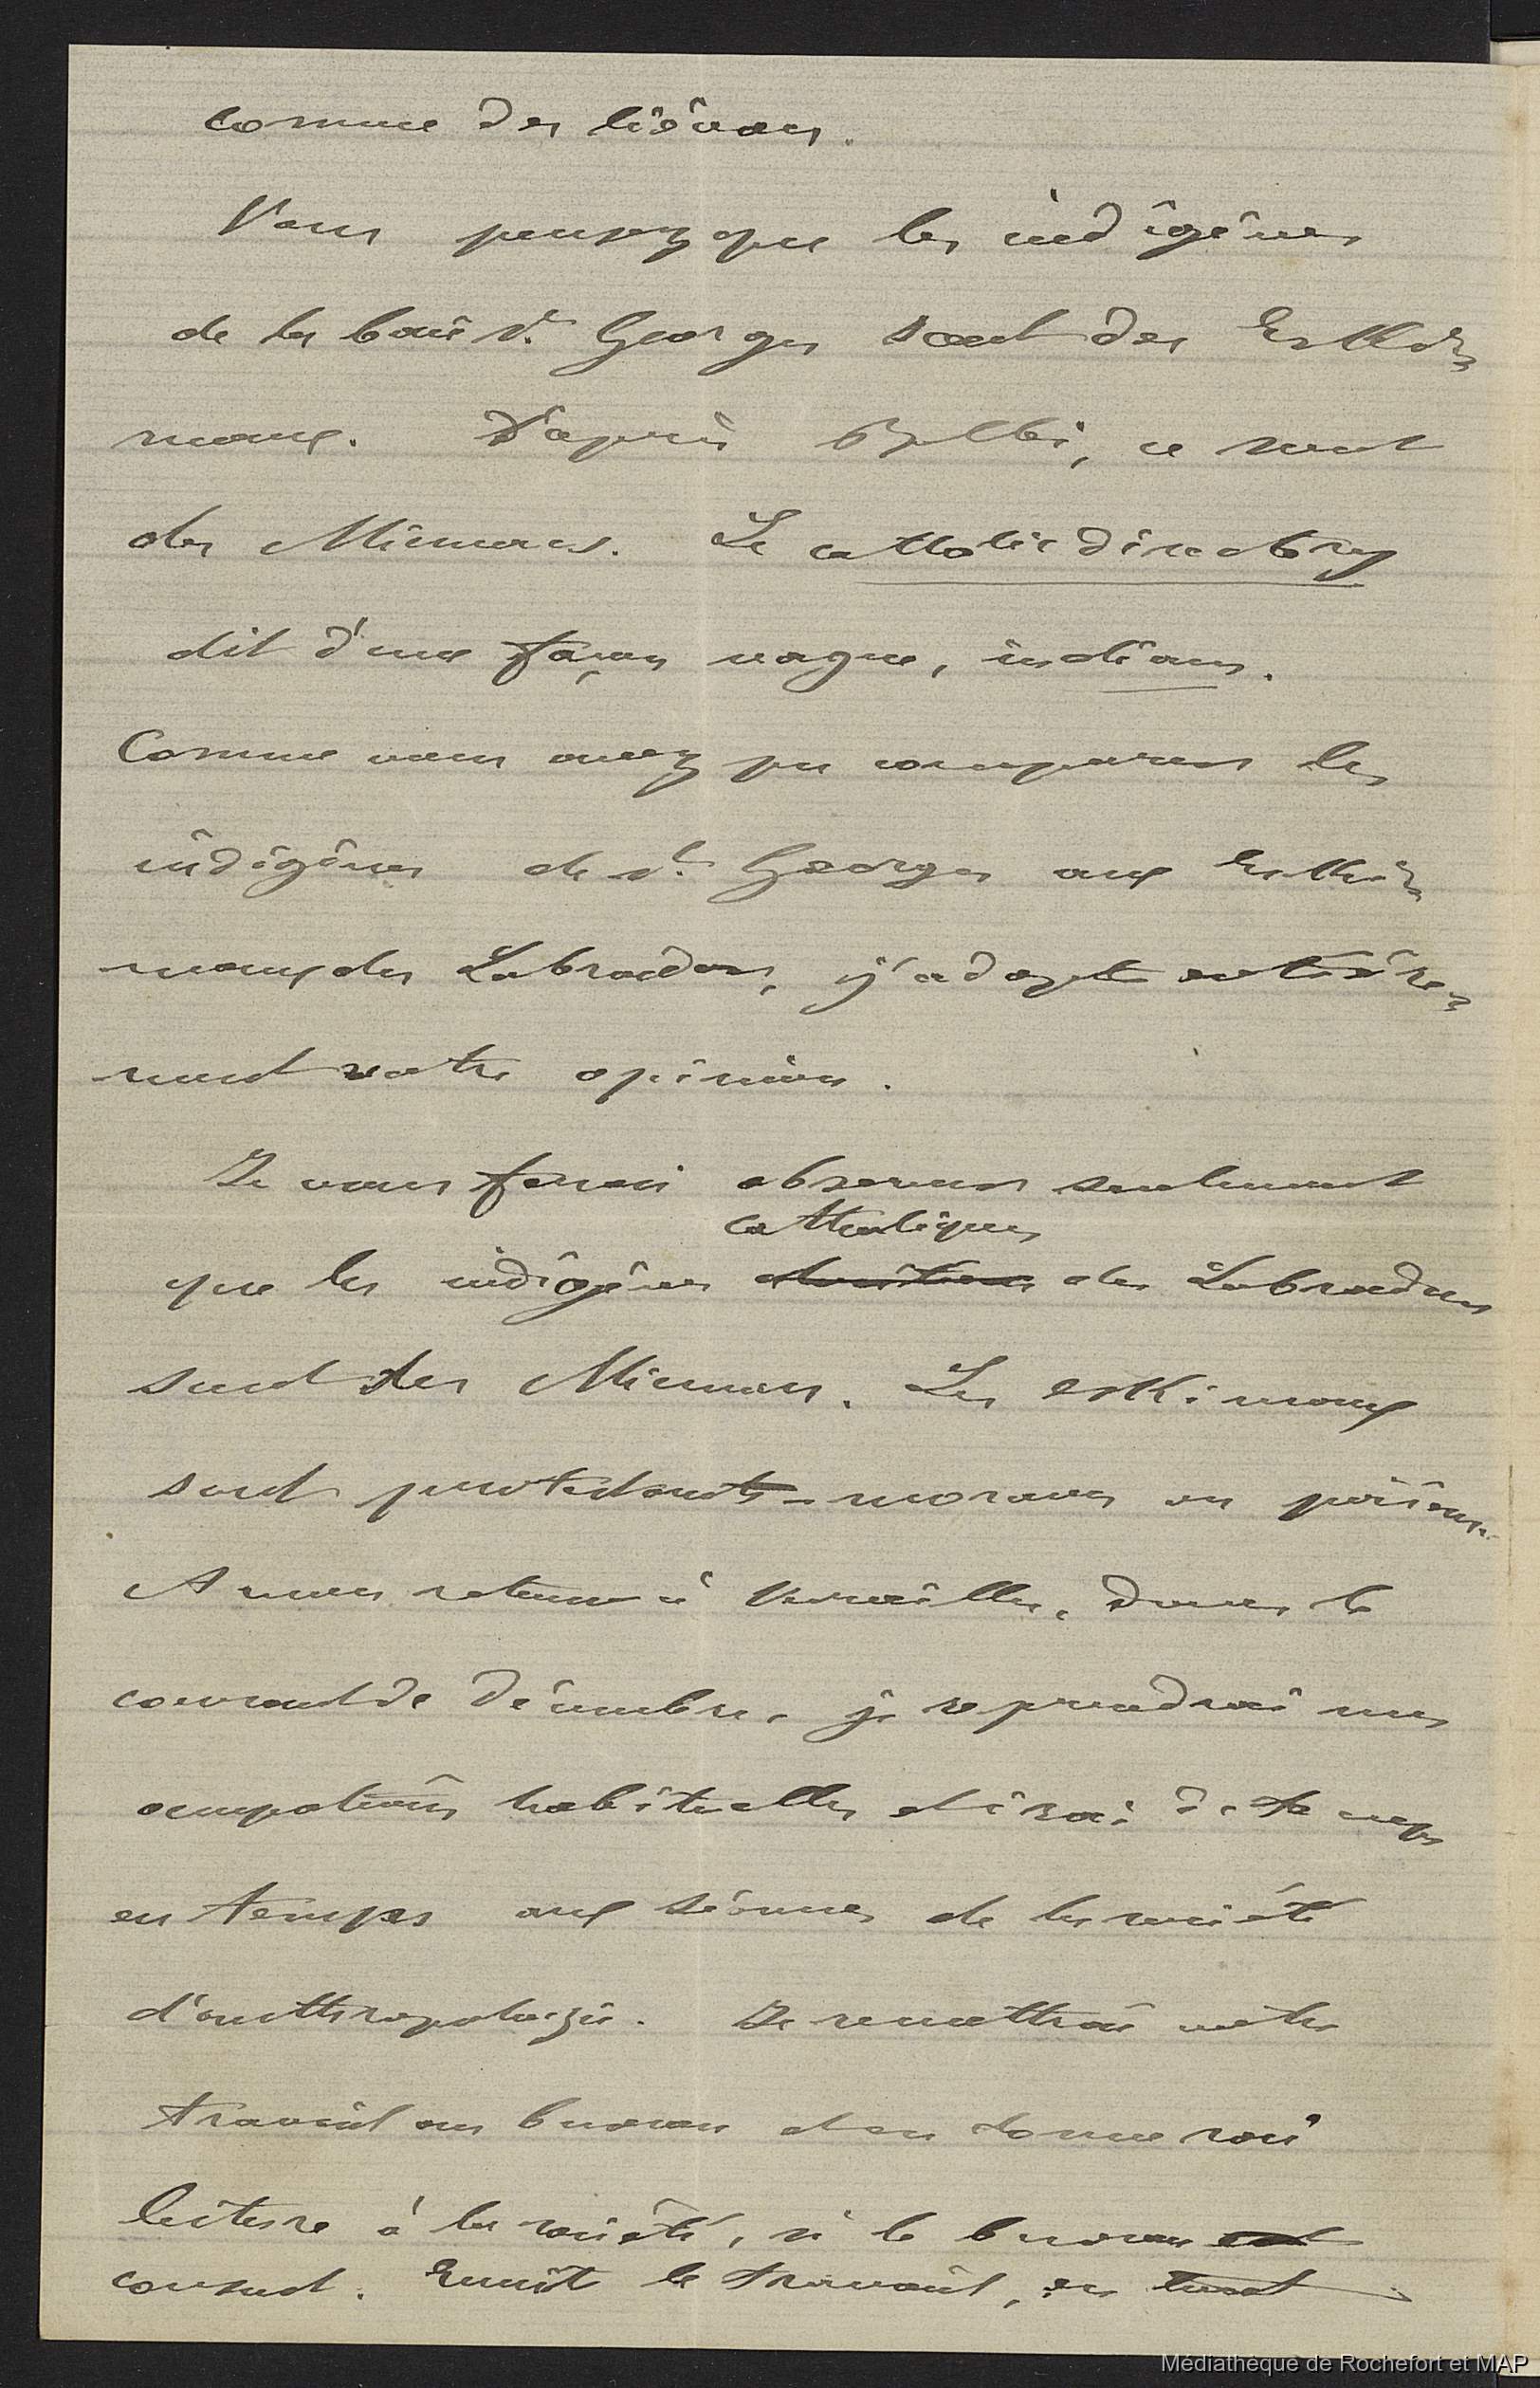 comme des liévans.
Vous pensez que les indigènes
de la baie St. Georges sont des Eskki-
maux. D'après Balbi, ce sont
des Micmacs. Le catholic directory
dit d'une façon vague, indians.
Comme vous avez pu comparer les
indigènes de St. Georges aux Eskki-
maux du Labrador, j'adopte entière-
ment votre opinion.
Je vous ferai observer seulement
catholiques
que les indigènes du Labrador
sont des Micmacs. Les eskkimaux
sont protestants-moraves ou païens.
A mon retour à Versailles, dans le
courant de décembre, je reprendrai mes
occupations habituelles et irai de temps
en temps aux séances de la société
d'anthropologie. Je remettrai votre
travail au bureau et en donnerai
lecture à la société, si le bureau
consent. Ensuite le travail, en tout
Médiathèque de Rochefort et MAP